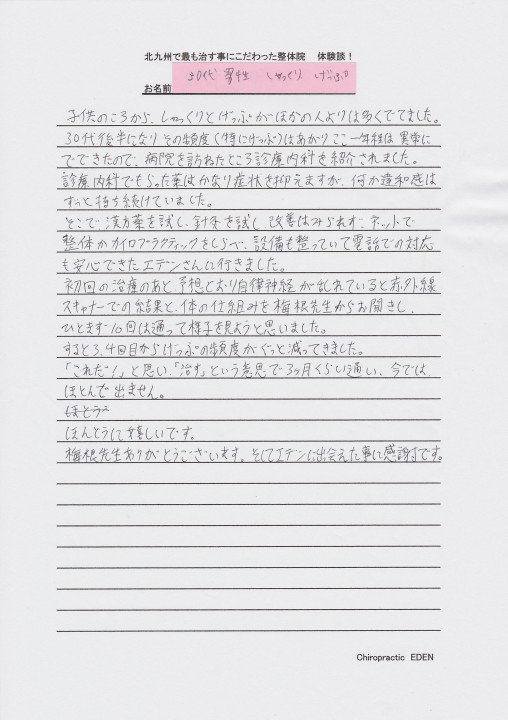 北九州で最も治す事にこだわった整体院 体験談!
お名前 30代 男性 しゃっくり げっぷ
子供のころから、しゃっくりとげっぷがほかの人よりは多くでてました。
30代後半になり その頻度(特にげっぷ)はあがり ここ一年程は異常に
でてきたので、病院を訪ねたところ診療内科を紹介されました。
診療内科でもらった薬はかなり症状を抑えますが、何か違和感は
ずっと持ち続けていました。
そこで漢方薬を試し、針灸を試し 改善はみられず、ネットで
整体かカイロプラクティックをしらべ、設備も整っていて電話での対応
も安心できたエデンさんに行きました。
初回の治療のあと 予想どおり自律神経が乱れていると赤外線
スキャナーでの結果と、体の仕組みを梅根先生からお聞きし、
ひとまず10回は通って様子を見ようと思いました。
すると3、4回目からげっぷの頻度がぐっと減ってきました。
「これだ!」と思い、「治す」という意思で3ヶ月くらい通い、今では
ほとんで出ません。
ほんとうに嬉しいです。
梅根先生ありがとうございます。そしてエデンに出会えた事に感謝です。
Chiropractic EDEN